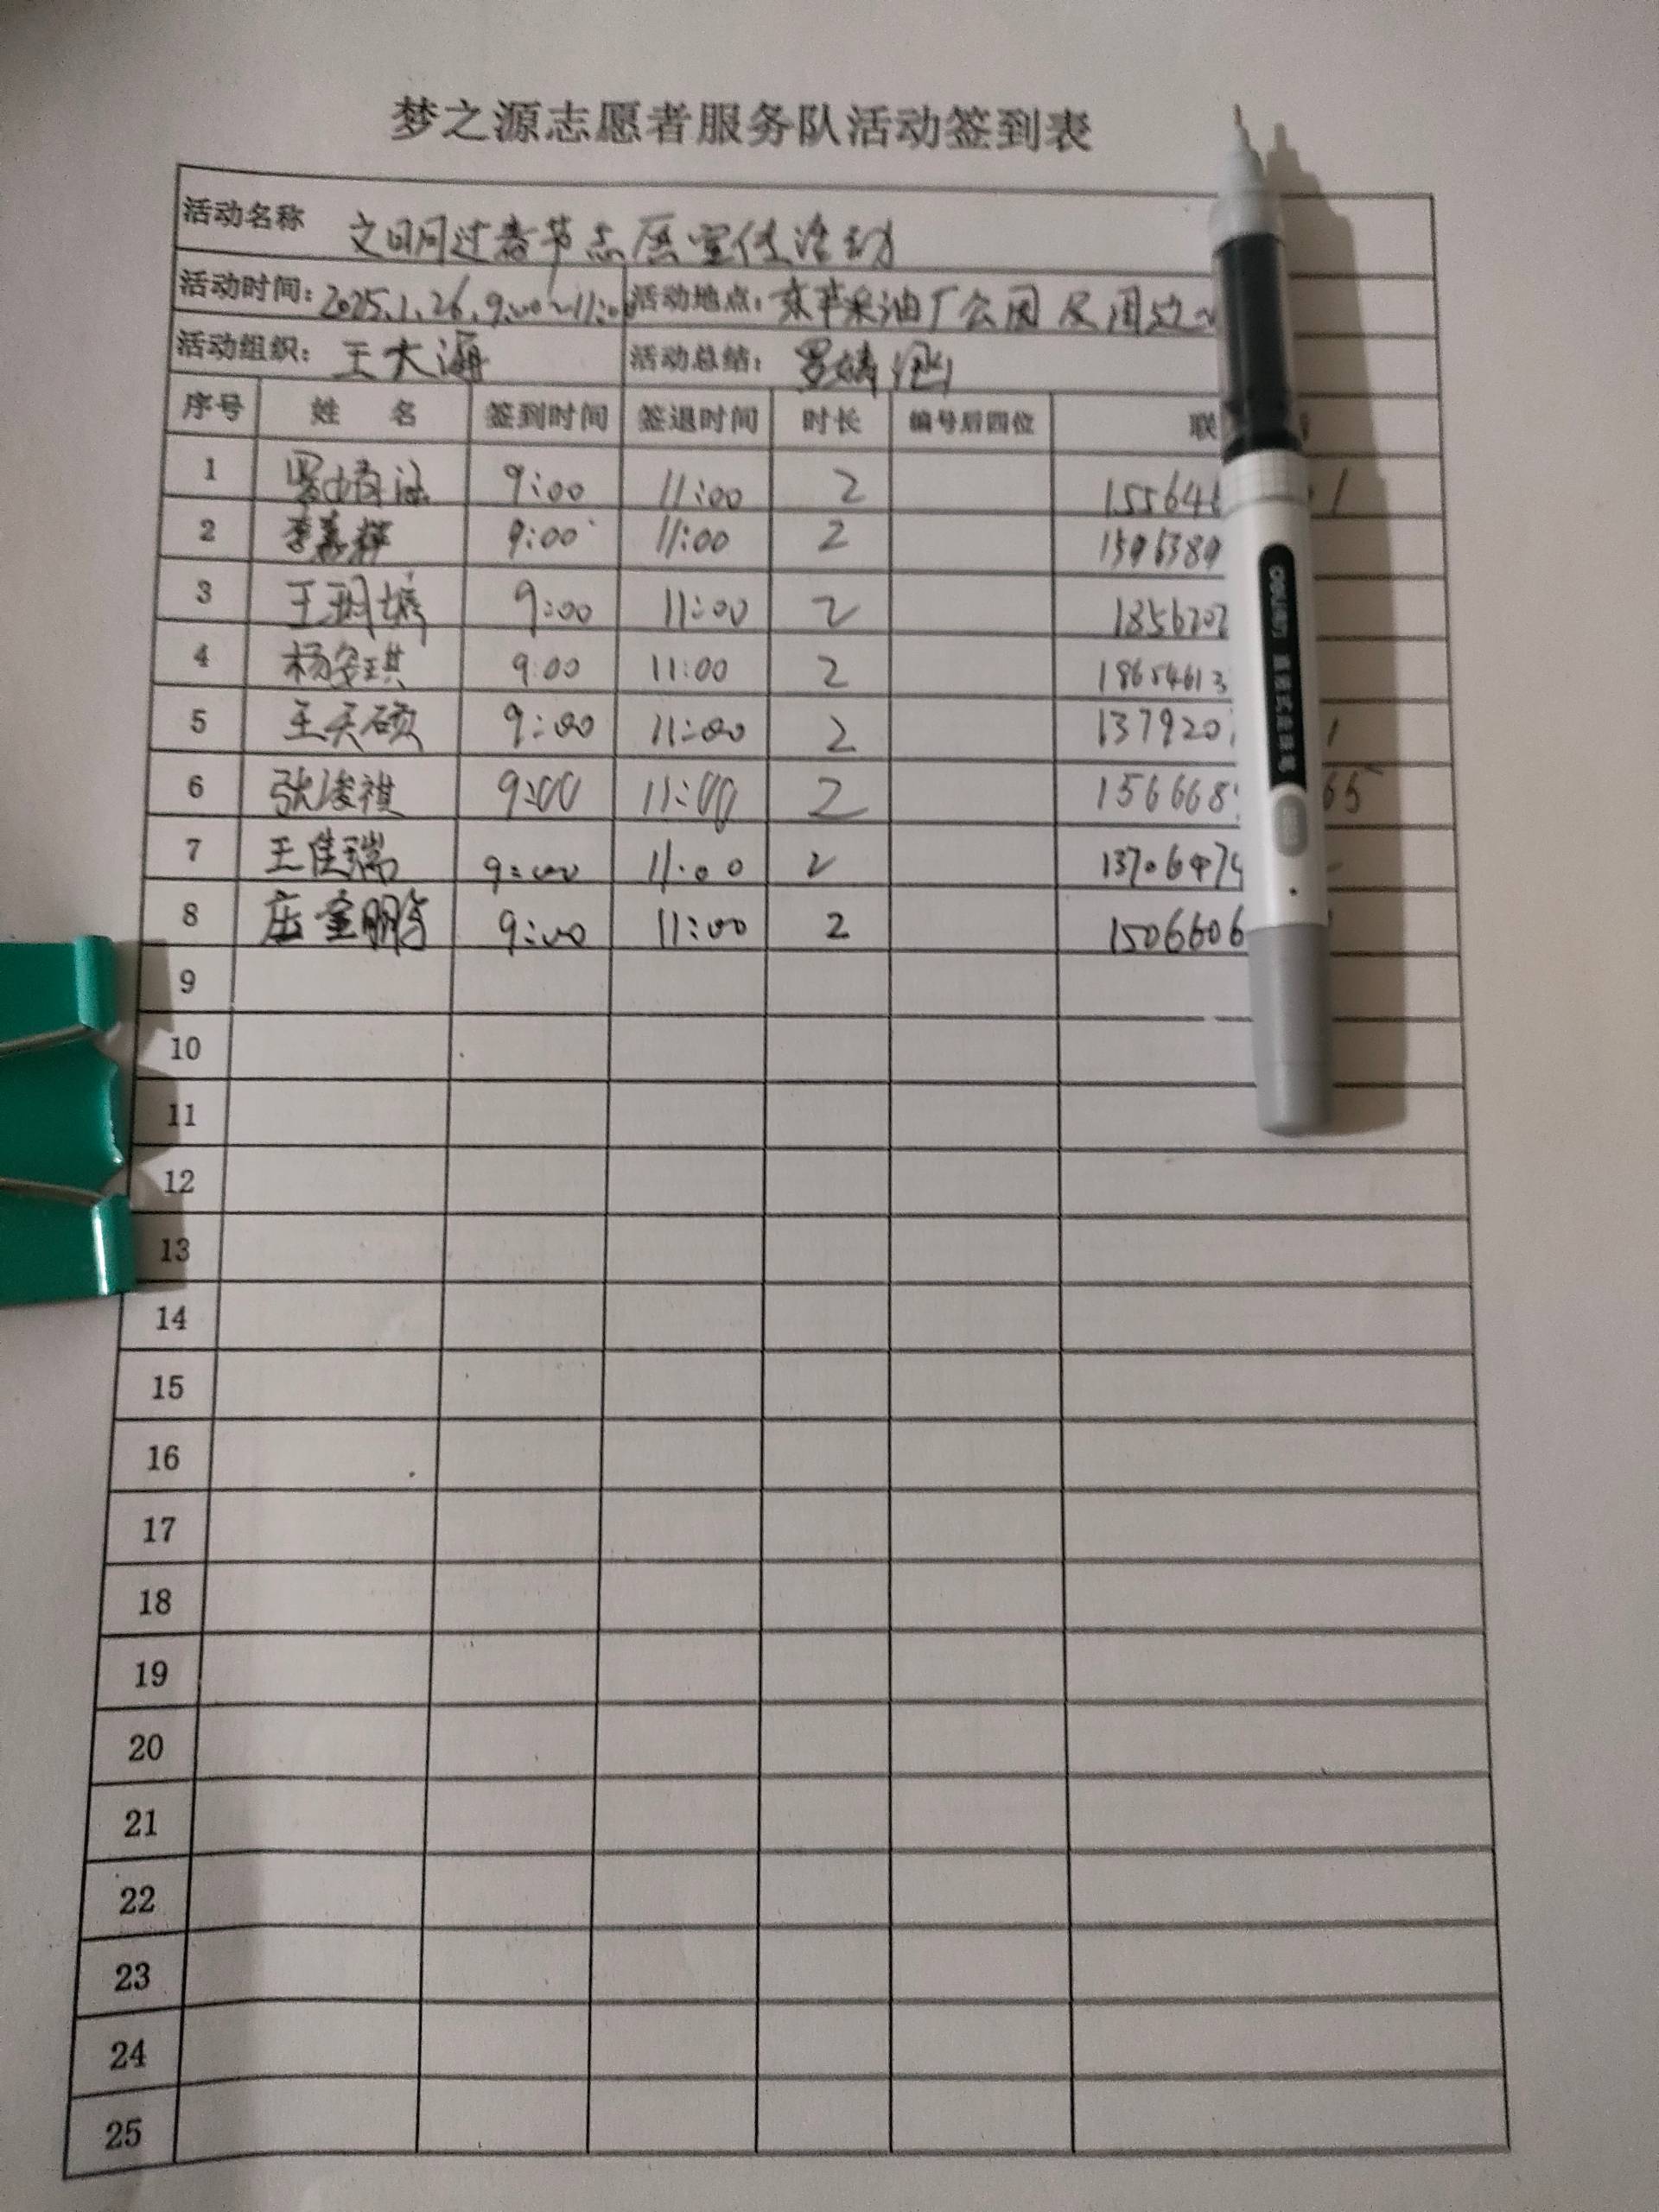 梦之源志愿者服务队活动签到表
活动名称 文明过春节志愿宣传活动
活动时间: 2025.1.26. 9:00~11:00 活动地点: 采油厂公园及周边
活动组织: 王大海 活动总结: 罗婧涵
序号 姓 名 签到时间 签退时间 时长 编号后四位 联
1 罗婧涵 9:00 11:00 2 15564 1
2 李嘉辉 9:00 11:00 2 1506380
3 王玥婷 9:00 11:00 2 1856202
4 杨安琪 9:00 11:00 2 18654613
5 王天硕 9:00 11:00 2 137920 1
6 张浚祺 9:00 11:00 2 156668 65
7 王佳瑞 9:00 11:00 2 13706474
8 9:00 11:00 2 1506606
9
10
11
12
13
14
15
16
17
18
19
20
21
22
23
24
25
deli 直液式走珠笔